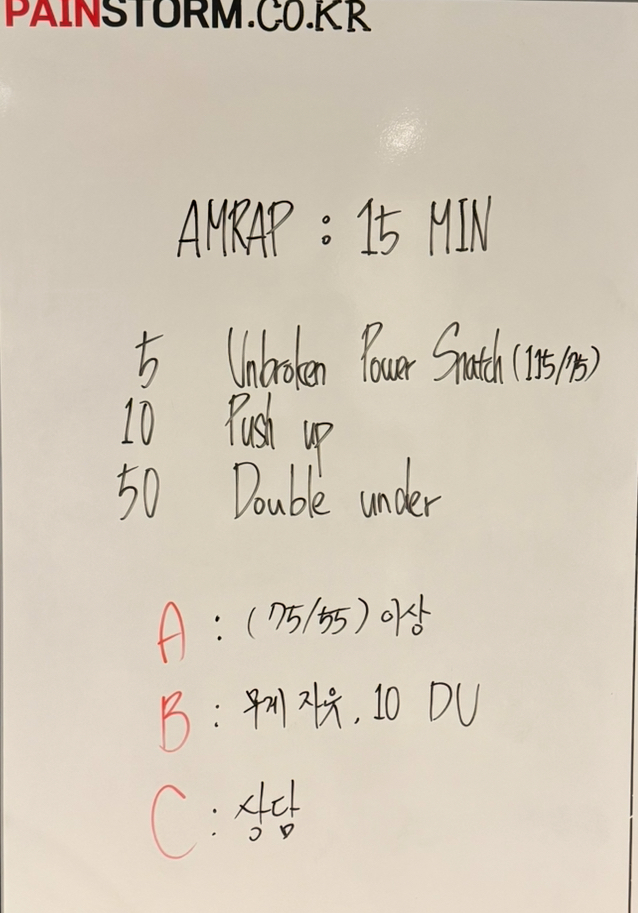 PAINSTORM.CO.KR
AMRAP : 15 MIN
5 Unbroken Power Snatch (115/75)
10 Push up
50 Double under
A : (75/55) 이상
B : 무게 자유, 10 DU
C : 상담